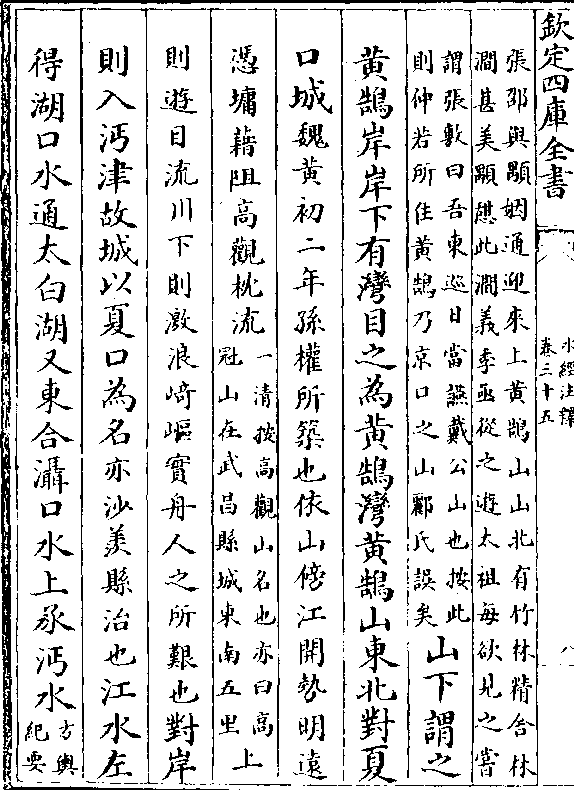 欽定四庫全書
水經注釋
卷三十五
八
張邵與顒姻通迎來上黃鵠山山北有竹林精舍林
澗甚美顒憩此澗義季亟從之遊太祖每欲見之嘗
謂張敷曰吾東巡日當讌戴公山也按此
則仲若所住黃鵠乃京口之山酈氏誤矣
山下謂之
黃鵠岸岸下有灣目之為黃鵠灣黃鵠山東北對夏
口城魏黃初二年孫權所築也依山傍江開勢明遠
憑墉藉阻高觀枕流
一清按高觀山名也亦曰高
冠山在武昌縣城東南五里
上
則遊目流川下則激浪崎嶇實舟人之所艱也對岸
則入沔津故城以夏口為名亦沙羨縣治也江水左
得湖口水通太白湖又東合灄口水上承沔水
方輿
紀要